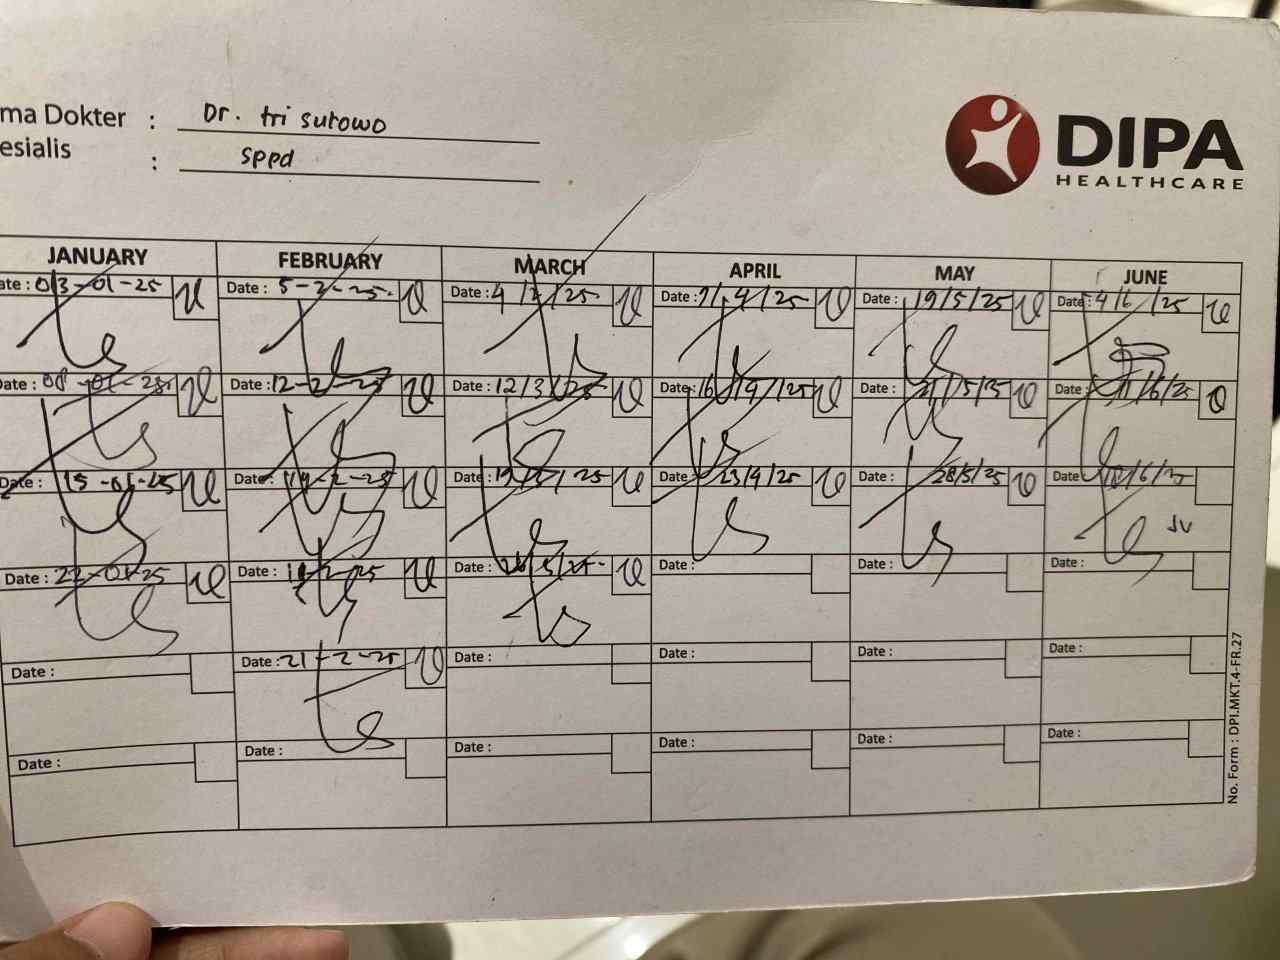 ma Dokter : Dr. tri sutowo
esialis : sppd
DIPA
HEALTHCARE
JANUARY FEBRUARY MARCH APRIL MAY JUNE
ate : 03-01-25 Date : 5-2-25 Date : 4/ /25 Date : 7/4/25 Date : 19/5/25 Date : 4/6/25
Date : 08-01-25 Date : 12-2-25 Date : 12/3/25 Date : 16/ /25 Date : 21/5/25 Date : 11/6/25
Date : 15-01-25 Date : -2-25 Date : /25 Date : 23/4/25 Date : 28/5/25 Date : /6/25
Date : 22-01-25 Date : -2-25 Date : Date : Date : Date :
Date : Date : 21-2-25 Date : Date : Date : Date :
Date : Date : Date : Date : Date : Date :
No. Form : DPI.MKT.4-FR.27